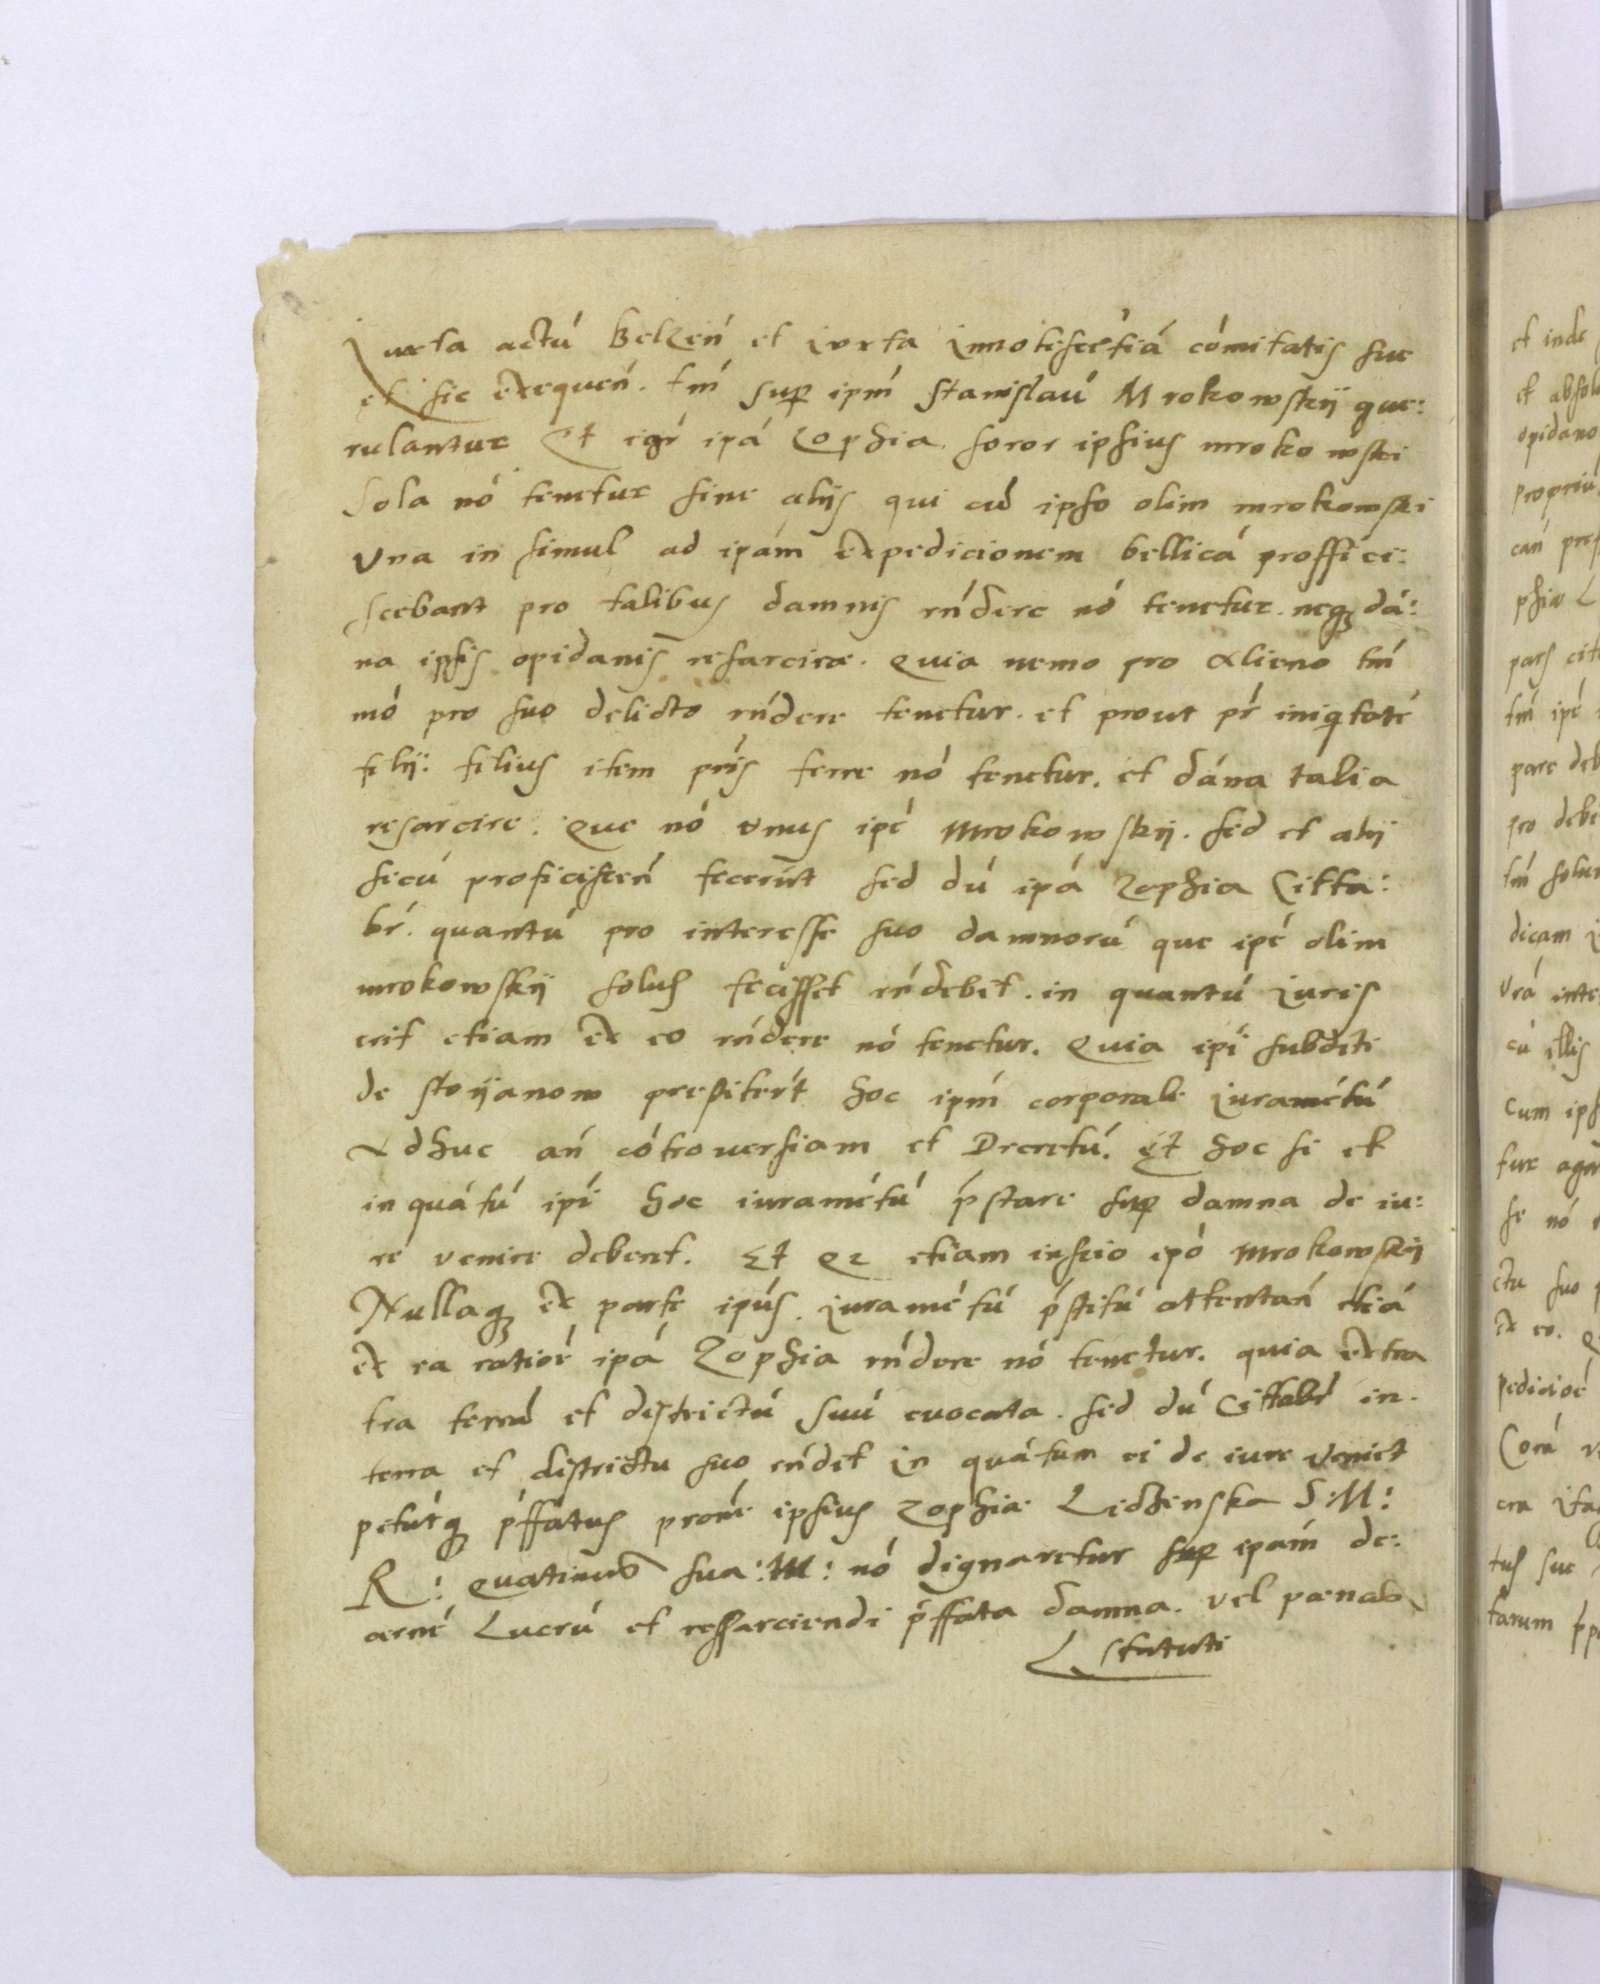 Iuxta actú Belzeń et iuxta innotescétiá cómitatis sue
et sic exequeń. tḿ sup ipḿ Stanislaú Mrokowskij que:
rulantur Et igr̃ ipá Zophia soror ipsius mrokowski
Sola nó tenetur sine alijs qui cú ipso olim mrokowski
Vna in simul ad ipám expedicionem bellicá proffici:
scebant pro talibus damnis rńdere nó tenetur. neq dá:
na ipsis opidanis resarcire. Quia nemo pro alieno tḿ
mó pro suo delicto rńdere tenetur. et prout pŕ iniqtaté
filij. filius item pŕis ferre nó tenetur. et dána talia
resarcire. Que nó vnus ipé Mrokowskij. sed et alij
secú proficisceń fecerút sed dú ipá Zophia Citta:
bŕ. quantú pro interesse suo damnorú que ipé olim
mrokowskij solus fecisset rńdebit. in quantú iuris
erit etiam ex eo rńdere nó tenetur. Quia ipí subditi
de Stoijanow prestitert hoc ipḿ corporale iuramétú
Adhuc ań cótrouersiam et Decretú. Et hoc si et
inquátú ipí hoc iuramétú ṕstare sup damna de iu:
re venire deberet. Et qz etiam inscio ipó Mrokowskij
Nullaq ex parte ipús. iuramétú ṕstitú attentań etiá
ex ea ratioé ipá Zophia rńdere nó tenetur. quia extra
tra terrá et districtú suú euocata. sed dú Cittabŕ in.
terra et districtu suo rńdet in quátum ei de iure veniet
petútq ṕffatus proré ipsius Zophie Lidzenska S: M:
R: Quatinus sua: M: nó dignaretur sup ipám de:
cerné Lucrú et ressarciendi ṕffata damna. vel pœnas
Statuti
et inde
et absol
opidano
propriú
cań pres
phia L
pars cit
tḿ ipé
pare deb
pro debi
tḿ solu
dicam
vrá inte
cú illis
Cum ips
tur age
se nó
ctu suo
ex eo. Q
pedicioé
Corá v
cra
tus sue
tarum